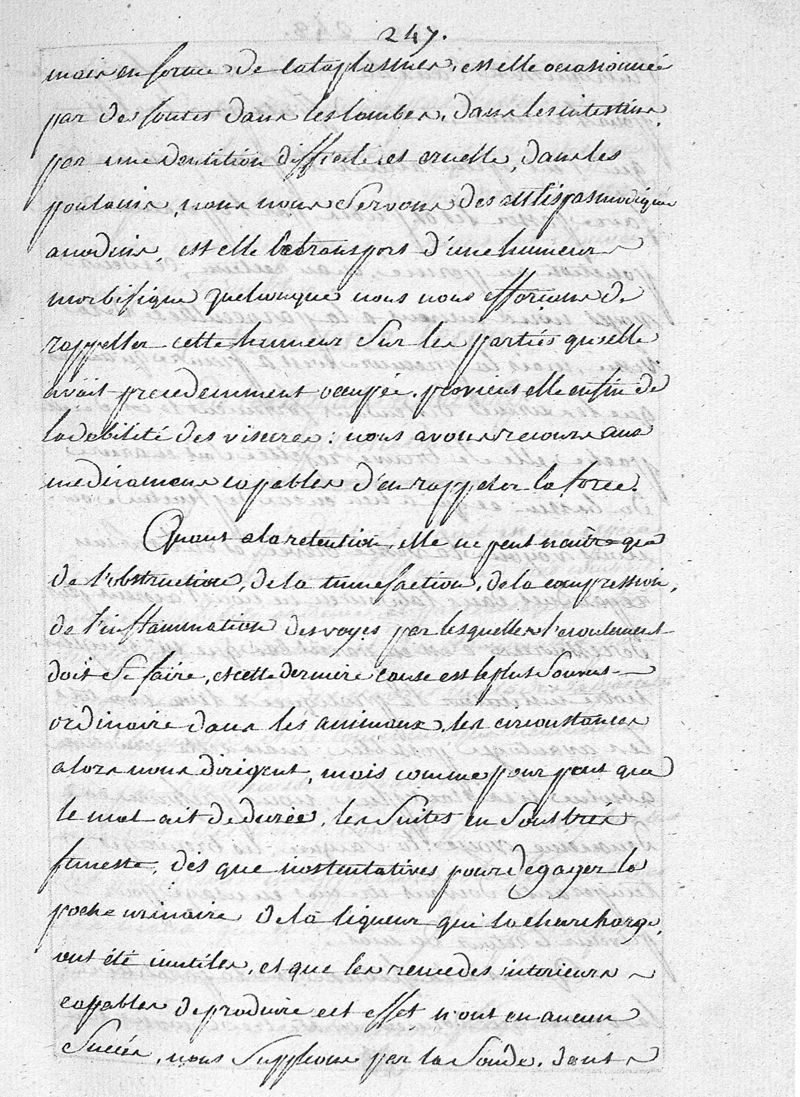 247.
mais en forme de cataplasmes. est elle occasionnée
par des luttes dans les lombes, dans les intestins
par une dentition difficile et cruelle, dans les
poulains, nous nous servons des antispasmodiques
anodins, est elle le transport d'une humeur
morbifique quelconque nous nous efforcons de
rappeller cette humeur sur les parties qu'elle
avait precedemment occupée. provient elle enfin de
la debilité des visceres: nous avons recours aux
medicamens capables d'en rappeler la force.
Quant a la retention, elle ne peut naitre que
de l'obstruction, de la tumefaction, de la compression,
de l'inflammation des voyes par lesquelles l'ecoulement
doit se faire, et cette derniere cause est le plus souvent
ordinaire dans les animaux. les circonstances
alors nous dirigent, mais comme pour peut que
le mal ait de durée, les suites en sont très
funeste, des que nos tentatives pour degager la
poche urinaire de la liqueur qui la surcharge,
ont été inutiles, et que les remedes interieurs
capables de produire cet effet n'ont eu aucun
succès, nous suppleons par la sonde. dans